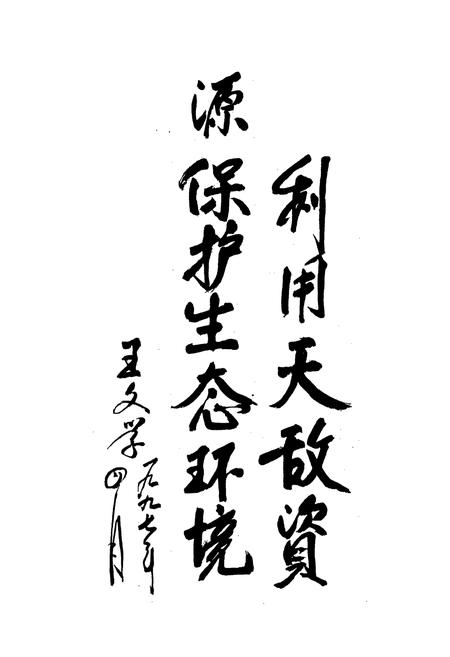 利用天敌資
源保护生态环境
王文学
一九九七年
四月